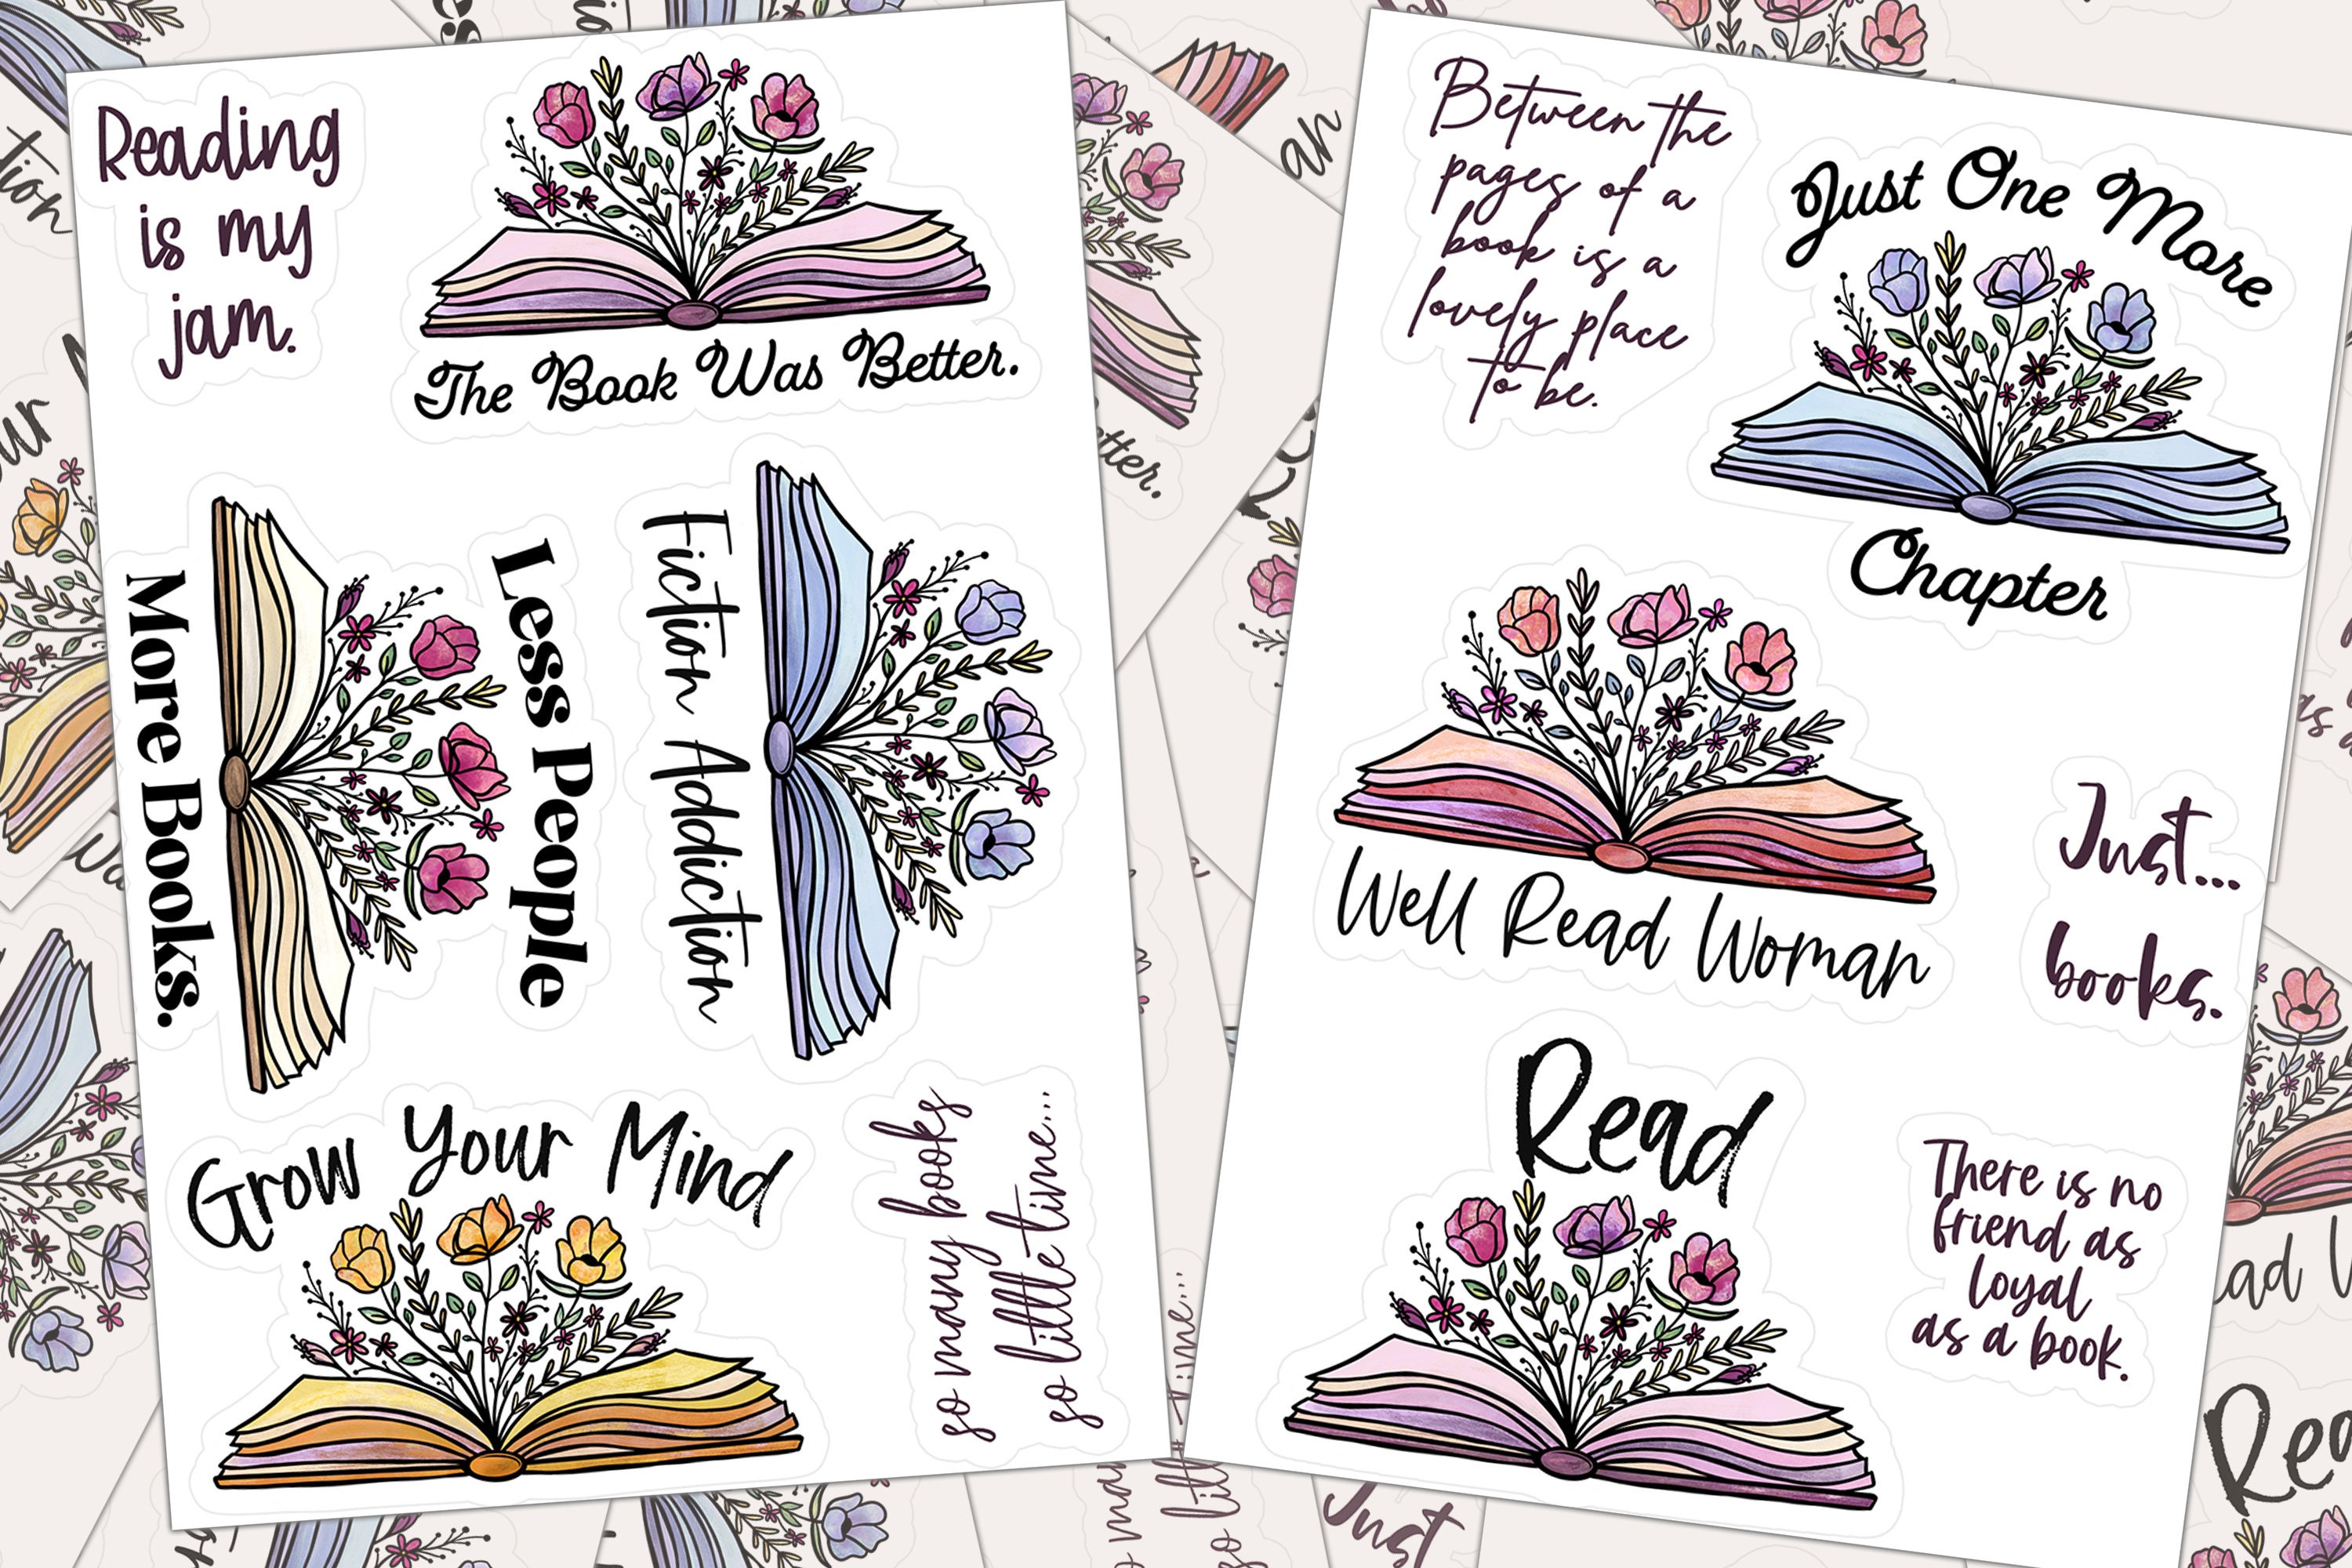 Reading
is my
jam.
The Book Was Better.
Less People
More Books.
Fiction Addiction
Grow Your Mind
so many books
so little time...
Between the
pages of a
book is a
lovely place
to be.
Just One More
Chapter
Well Read Woman
Just...
books.
Read
There is no
friend as
loyal
as a book.
an
tter.
Just